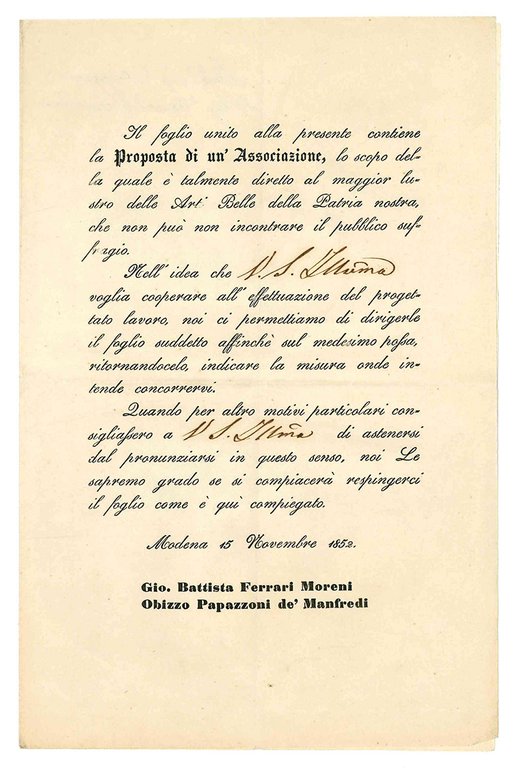 Il foglio unito alla presente contiene
la Proposta di un' Associazione, lo scopo del-
la quale è talmente diretto al maggior lu-
stro delle Art' Belle della Patria nostra,
che non può non incontrare il pubblico suf-
fragio.
Nell' idea che V. S. Illma
voglia cooperare all' effettuazione del proget-
tato lavoro, noi ci permettiamo di dirigerle
il foglio suddetto affinchè sul medesimo poſsa,
ritornandocelo, indicare la misura onde in-
tende concorrervi.
Quando per altro motivi particolari con-
sigliaſsero a V S. Illma di astenersi
dal pronunziarsi in questo senso, noi Le
sapremo grado se si compiacerà respingerci
il foglio come è quì compiegato.
Modena 15 Novembre 1852.
Gio. Battista Ferrari Moreni
Obizzo Papazzoni de' Manfredi